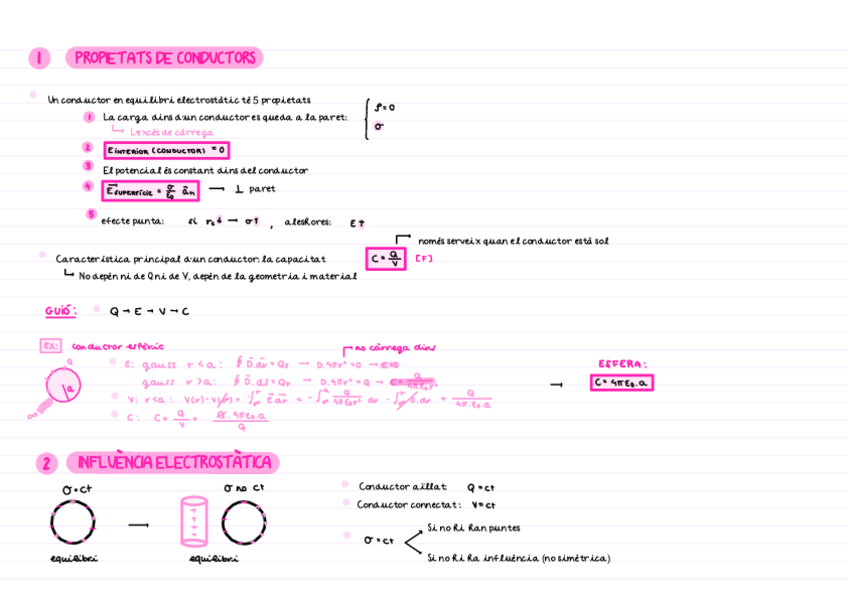 1 PROPIETATS DE CONDUCTORS
Un conductor en equilibri electrostàtic té 5 propietats
1 La carga dins d'un conductor es queda a la paret: { ρ=0
σ
↳ L'excés de càrrega
2 E INTERIOR (CONDUCTOR) = 0
3 El potencial és constant dins del conductor
4 E SUPERFÍCIE = σ/ε₀ âₙ → ⊥ paret
5 efecte punta: si r₀↓ → σ↑, aleshores: E↑
→ només serveix quan el conductor està sol
Característica principal d'un conductor: la capacitat C = Q/V [F]
↳ No depèn ni de Q ni de V, depèn de la geometria i material
GUIÓ: Q → E → V → C
EX: conductor esfèric
→ no càrrega dins
E: gauss r<a: ∮ D.ds = Qₙ → D.4πr² = 0 → E=0
gauss r>a: ∮ D.ds = Qₙ → D.4πr² = Q →
V: r<a:
C: C = Q/V =
Q
a
∞
→
ESFERA:
C = 4πε₀.a
2 INFLUÈNCIA ELECTROSTÀTICA
σ=ct → σ no ct
equilibri equilibri
Conductor aïllat: Q=ct
Conductor connectat: V=ct
σ=ct
Si no hi han puntes
Si no hi ha influència (no simètrica)